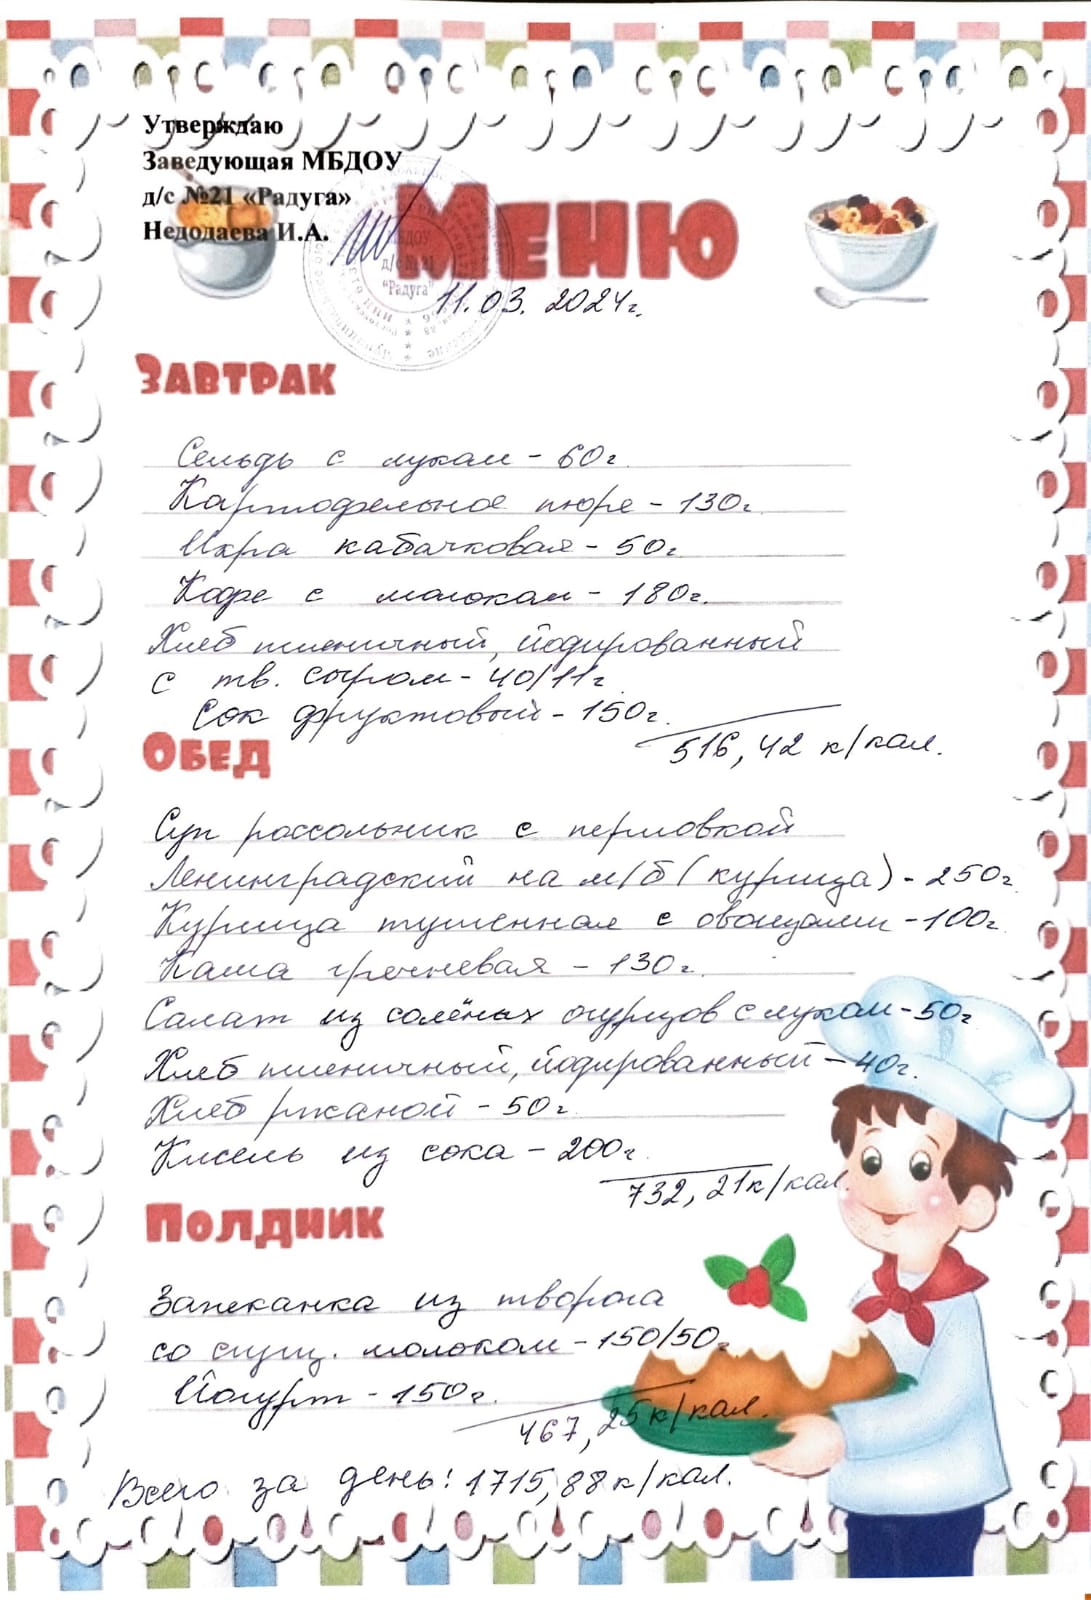 Утверждаю
Заведующая МБДОУ
д/с №21 «Радуга»
Недодаева И.А.
МБДОУ
д/с № 21
"Радуга"
Меню
11.03.2024г.
Завтрак
Сельдь с луком - 60г.
Картофельное пюре - 130г.
Икра кабачковая - 50г.
Кофе с молоком - 180г.
Хлеб пшеничный, йодированный
с тв. сыром - 40/11г.
Сок фруктовый - 150г.
516,42 к/кал.
Обед
Суп рассольник с перловкой
Ленинградский на м/б (курица) - 250г.
Курица тушенная с овощами - 100г.
Каша гречневая - 130г.
Салат из солёных огурцов с луком - 50г.
Хлеб пшеничный, йодированный - 40г.
Хлеб ржаной - 50г.
Кисель из сока - 200г.
732,21 к/кал.
Полдник
Запеканка из творога
со сгущ. молоком - 150/50г.
Йогурт - 150г.
467,25 к/кал.
Всего за день: 1715,88 к/кал.